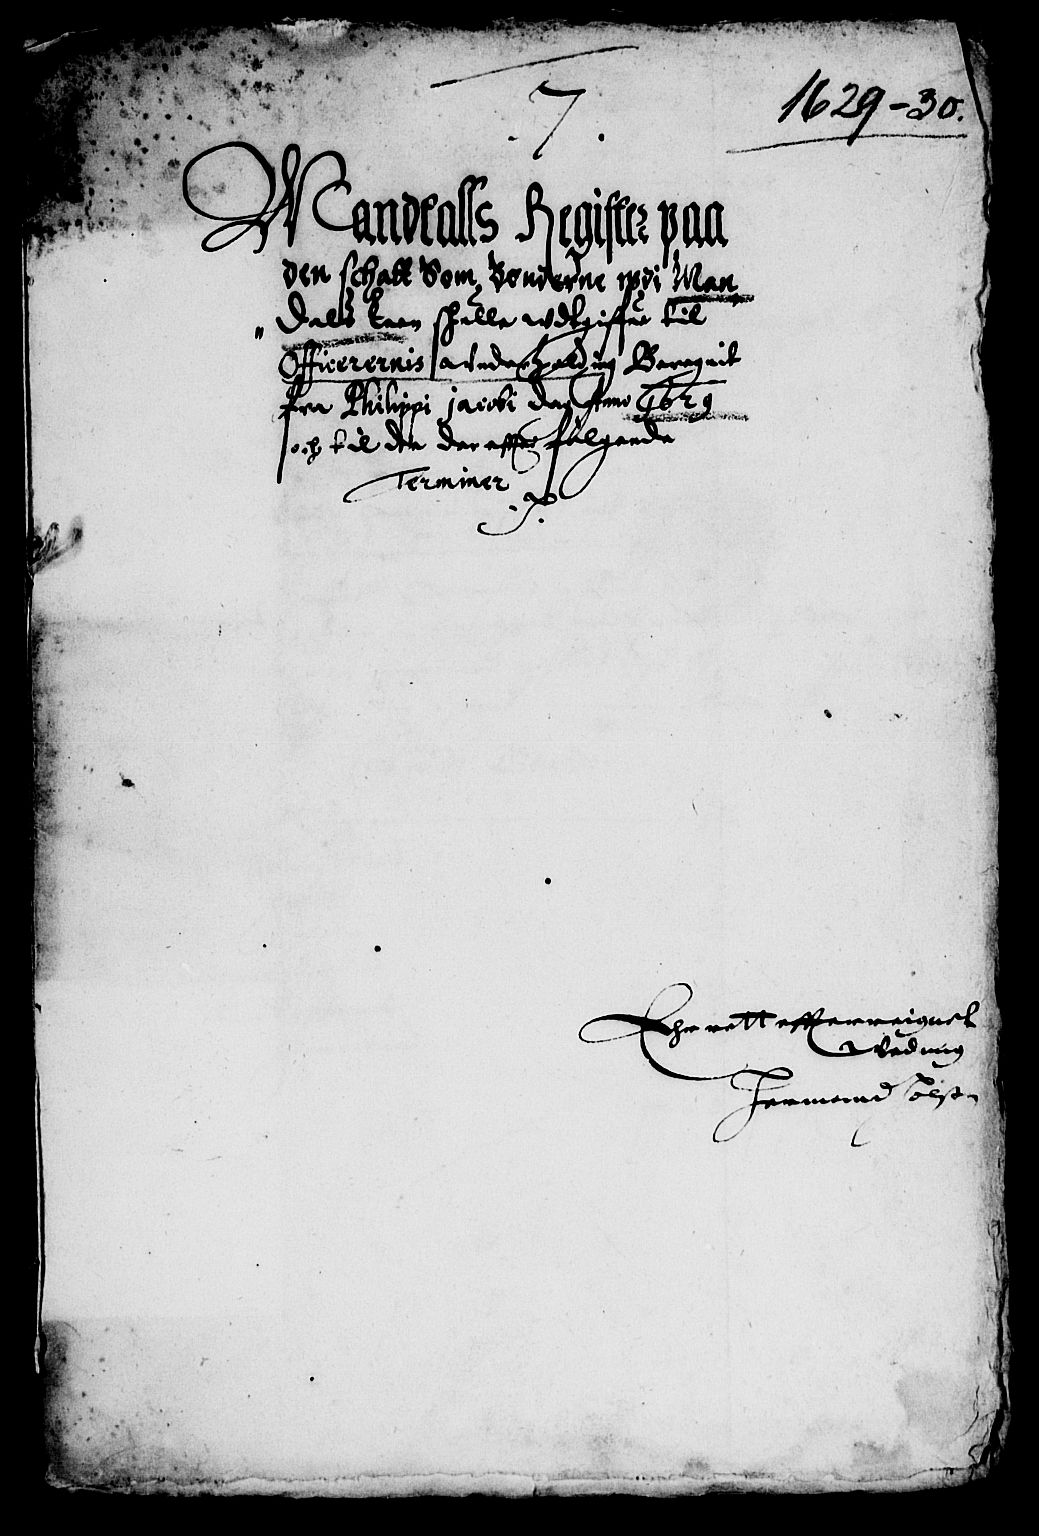 1629-30.
7.
Mandtalls Register paa
den schatt Som Bønderne wdi Man
Dals Leen schulle wdtgiffue til
Officerernis vnderholding Beregnit
fra Philippi Jacobi Dag Anno 1629
och til den der effter følgende
Terminer
rett effter